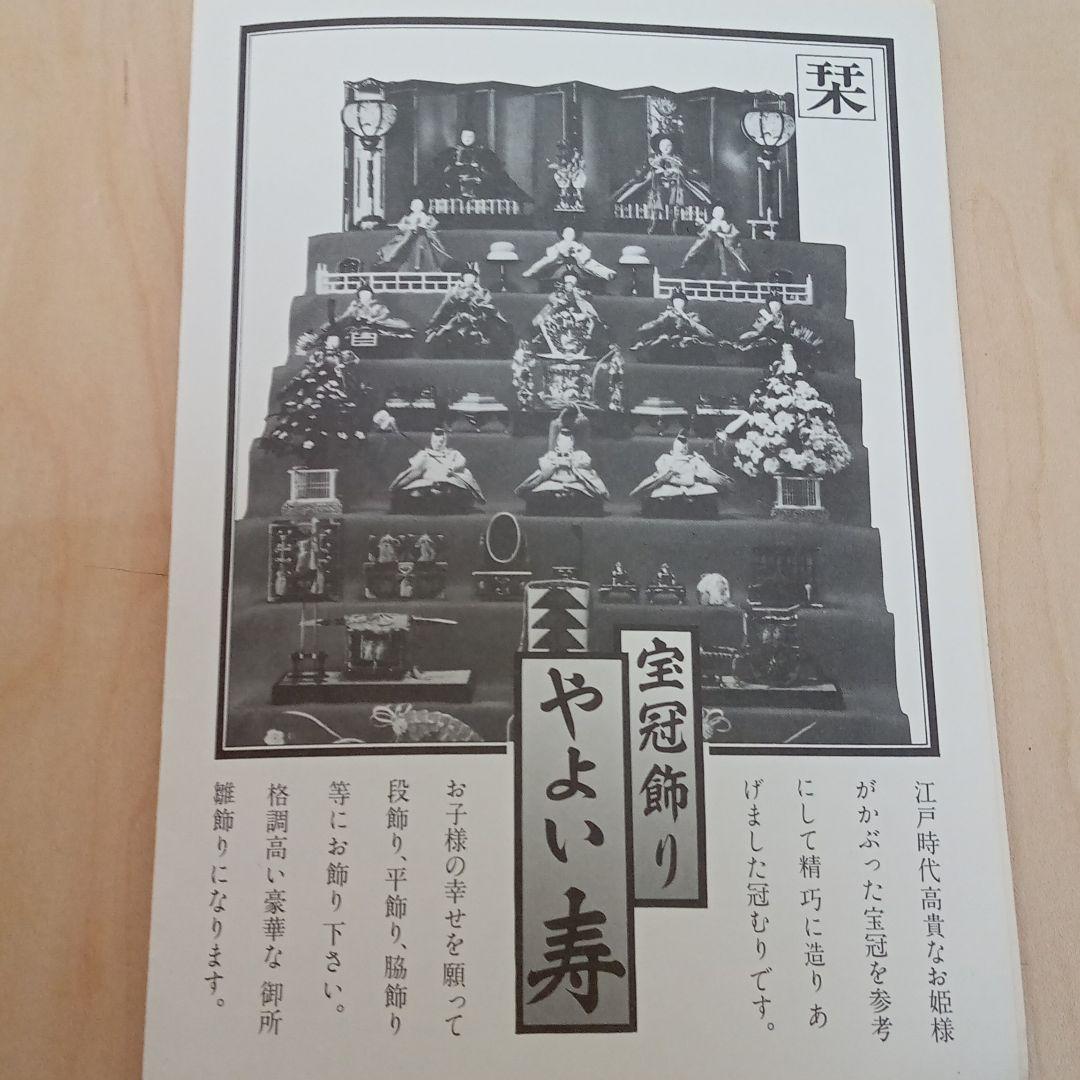 栞
宝冠飾り
やよい寿
江戸時代高貴なお姫様
がかぶった宝冠を参考
にして精巧に造りあ
げました冠むりです。
お子様の幸せを願って
段飾り、平飾り、脇飾り
等にお飾り下さい。
格調高い豪華な御所
雛飾りになります。